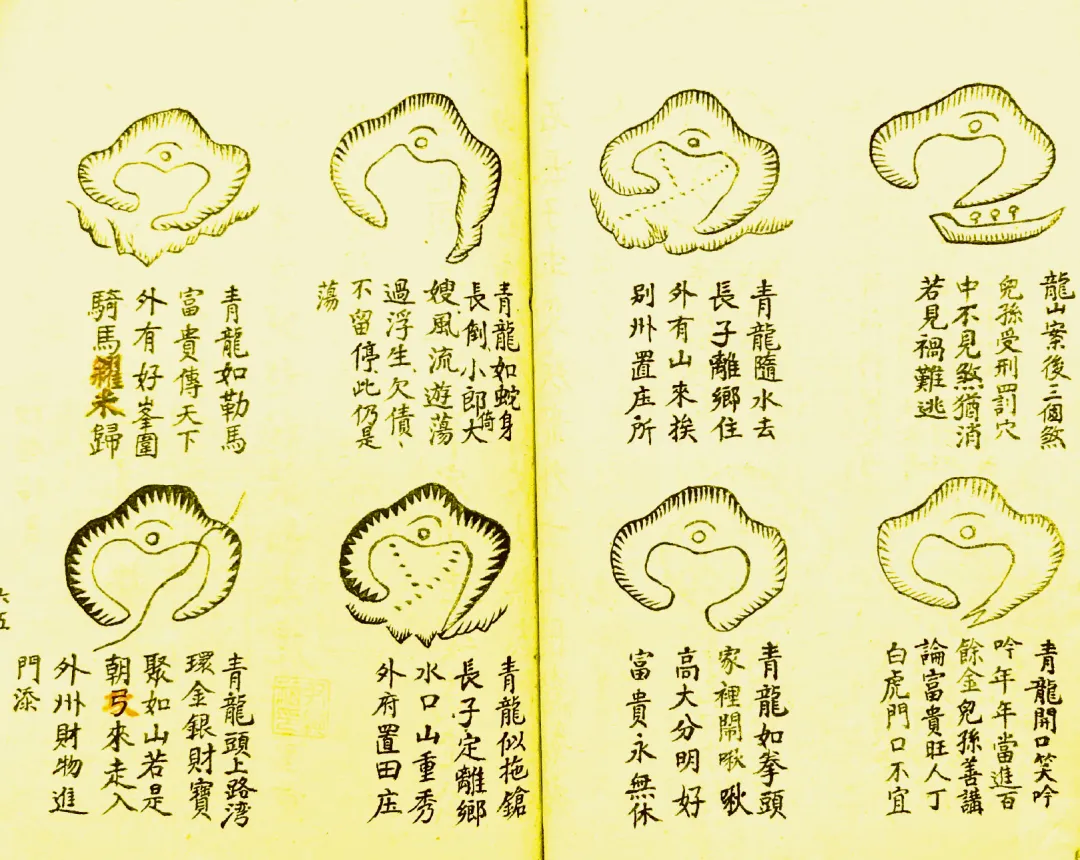 龍山案後三個煞
兒孫受刑罰穴
中不見煞猶消
若見禍難逃
青龍隨水去
長子離鄉住
外有山來挨
別州置庄所
青龍開口笑吟
吟年年當進百
餘金兒孫善講
論富貴旺人丁
白虎門口不宜
青龍如拳頭
家裡鬧啾啾
高大分明好
富貴永無休
青龍如蛇身
長倒小郎倚大
嫂風流遊蕩
過浮生欠債
不留停此仍是
蕩
青龍如勒馬
富貴傳天下
外有好峯圍
騎馬糴米歸
青龍似拖鎗
長子定離鄉
水口山重秀
外府置田庄
青龍頭上路湾
環金銀財寶
聚如山若是
朝弓來走入
外州財物進
門添
六五